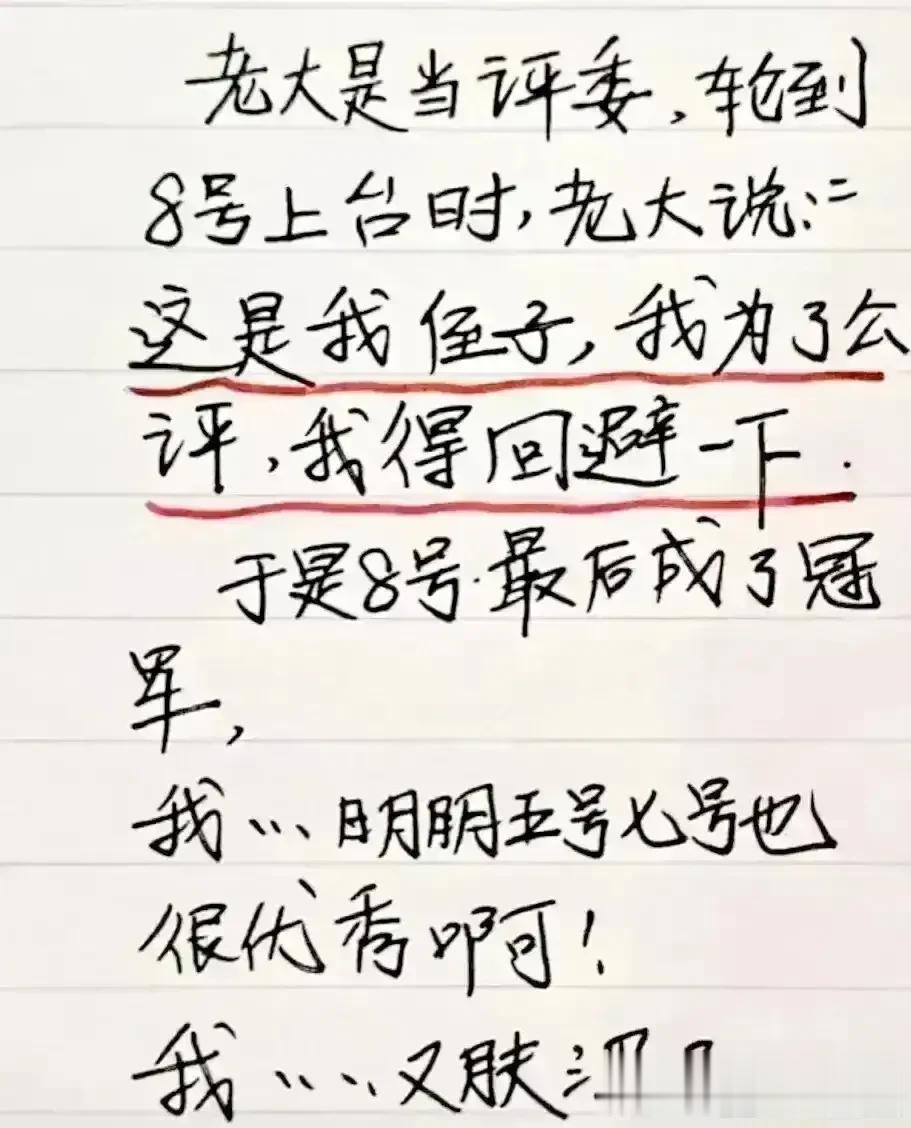 老大是当评委,轮到
8号上台时,老大说:"
这是我侄子,我为了公
评,我得回避一下.
于是8号.最后成了冠
军,
我...明明五号七号也
很优秀啊!
我.....又肤